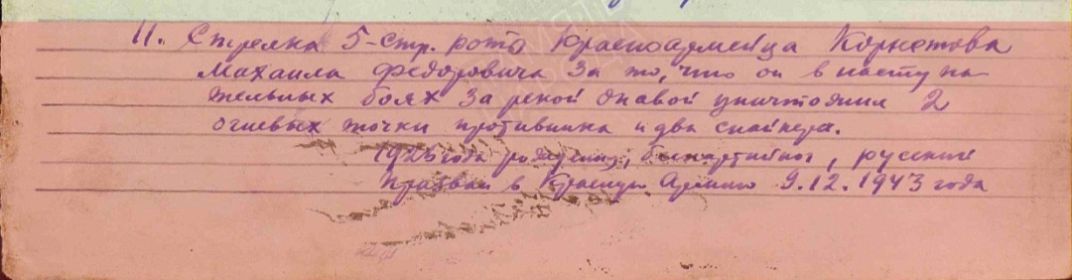 11. Стрелка 5-стр. роты Красноармейца Корнетова
Михаила Федоровича за то, что он в наступа-
тельных боях за рекой Олавой уничтожил 2
огневых точки противника и два снайпера.
1925 года рождения, беспартийного, русский
призван в Красную Армию 9.12.1943 года